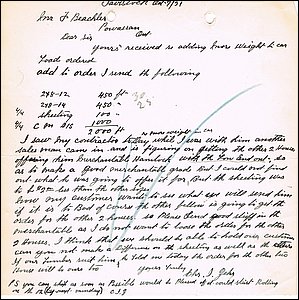 Mr J Beachler
Powassan
Ont
Dear Sir
Yours received re adding more weight to car
Load ordered
add to order I send the following
2x8-12 450 ft
2x8-14 450 "
4/4 sheeting 100
4/4 C M S1S 1000
2000 ft more weight in car
I saw my contractor today while I was with him another
sales man came in and is figuring on getting the other 2 House
offering him Merchantable Hemlock with the Low End out, so
as to make a good merchantable grade But I could not find
out what he was going to offer it for, But the sheeting was
to be less than the other
now our customer wants to see what you will send him
if it is to Bad of course the other fellow is going to get the
order for the other 2 houses so Please Send good stuff in the
merchantable as I do not want to loose the order for the other
2 Houses, I think that you should be able to hold our customer
can you not make a difference on the sheeting as well as the other
if our lumber suit him he told me today the order for the other two
House will be ours too Yours Truly,
Chs. J.
PS you can ship as soon as Possible would be Pleased if it could start Rolling
on the next monday C J